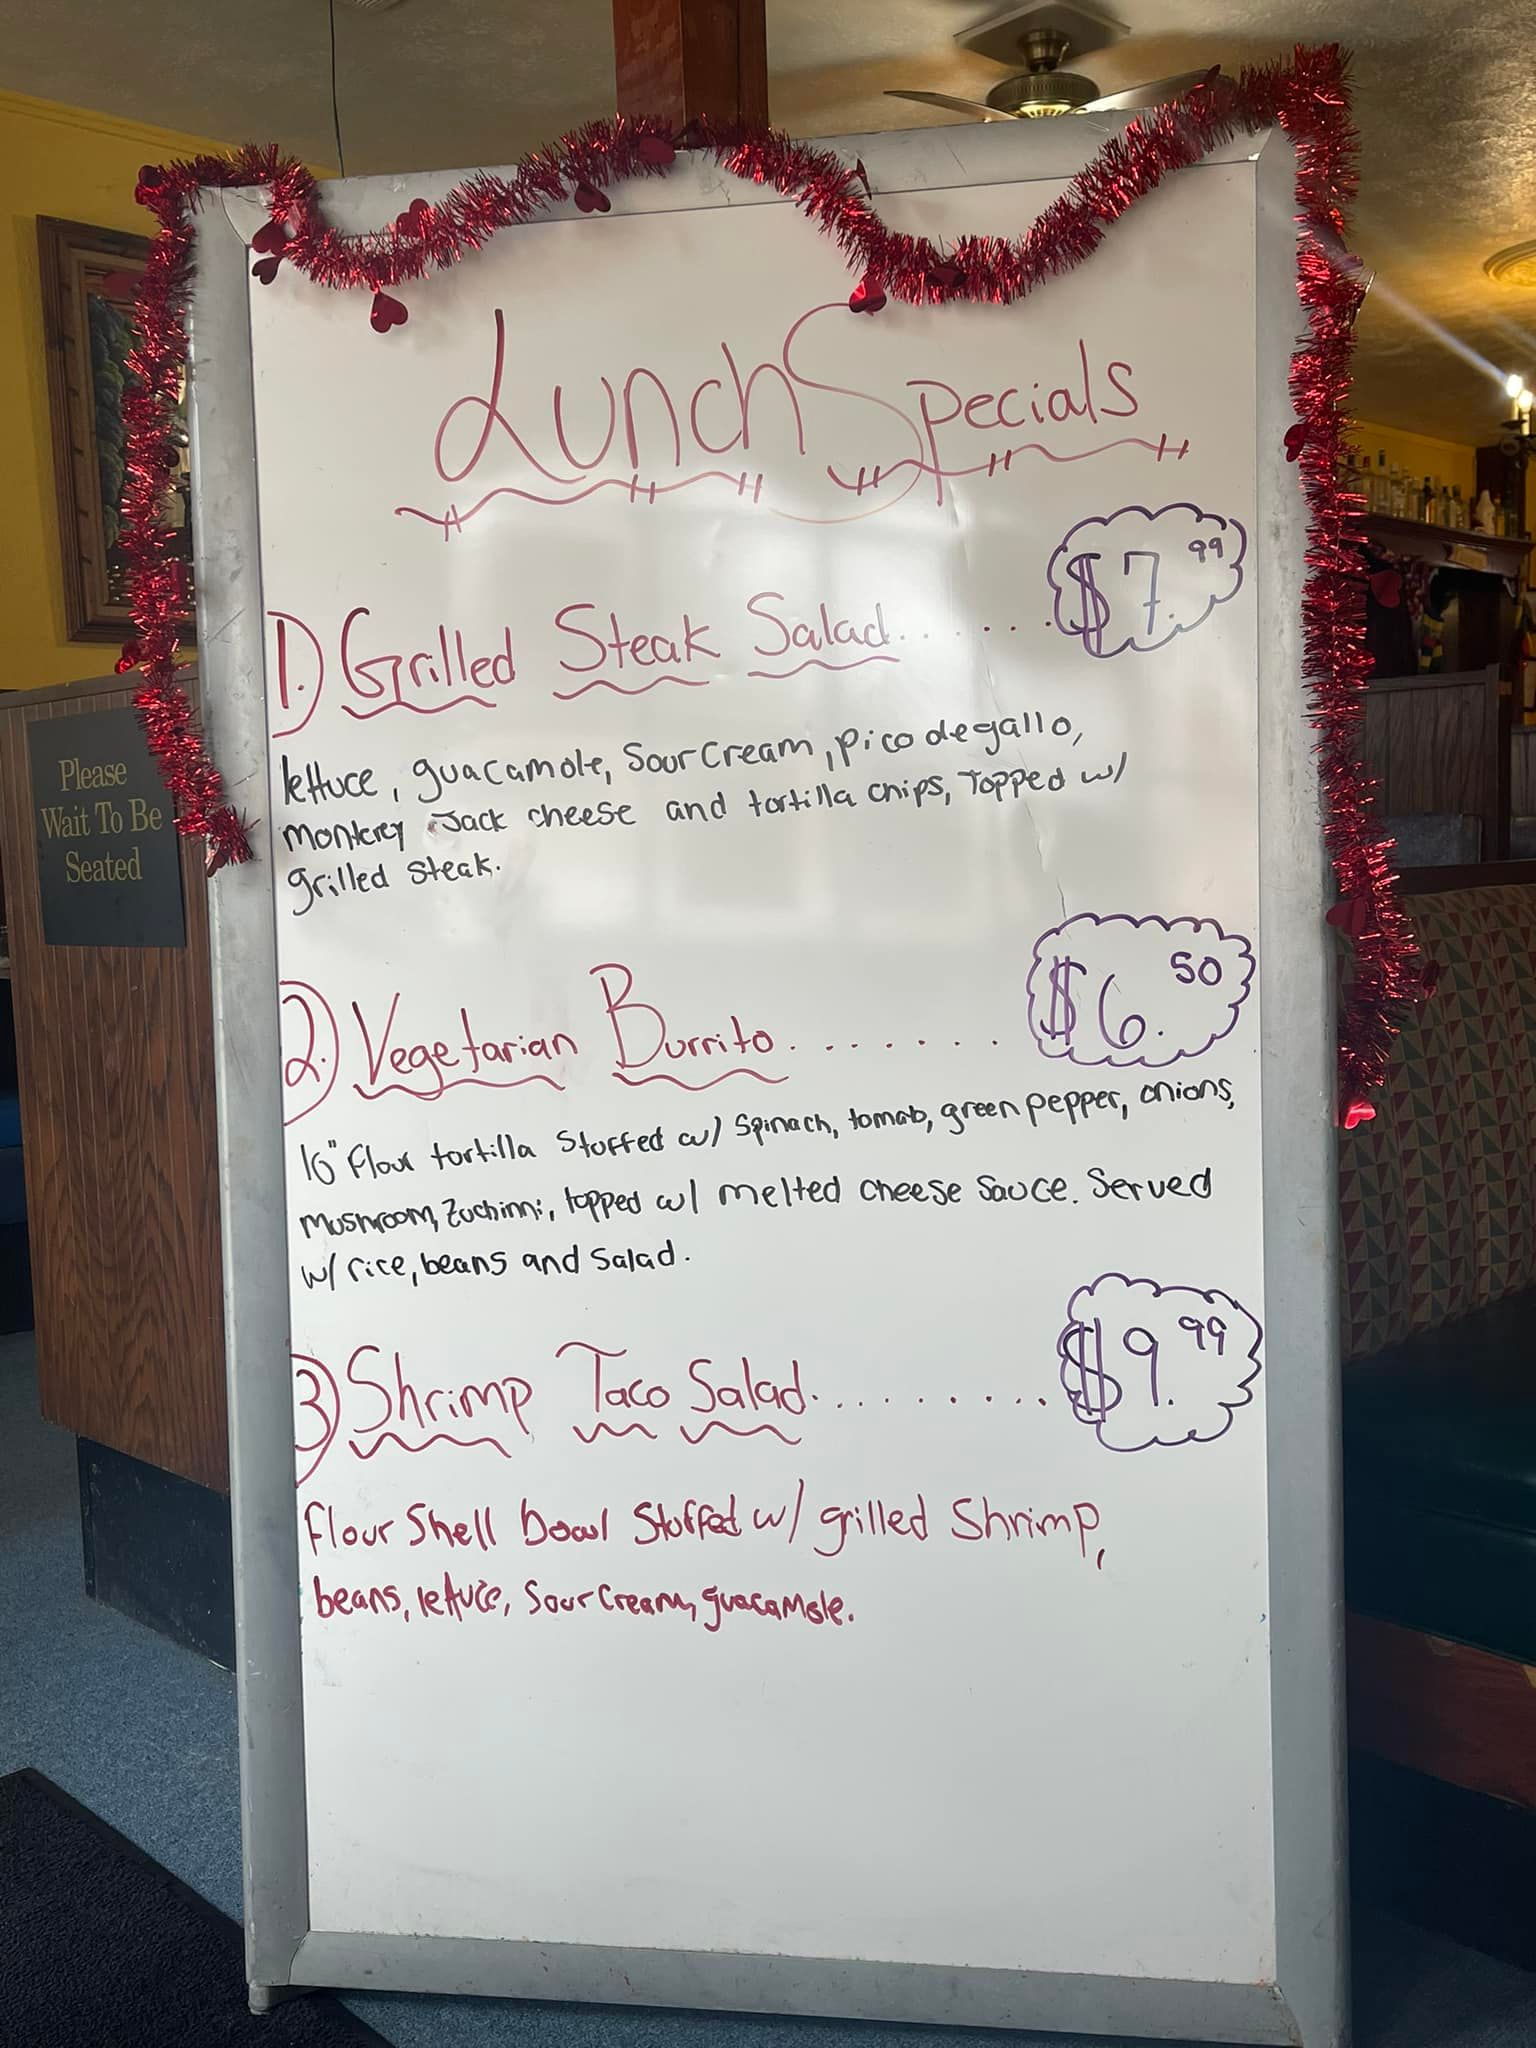 Lunch Specials
1. Grilled Steak Salad....... $7.99
lettuce, guacamole, Sour Cream, pico de gallo,
monterey Jack cheese and tortilla chips, Topped w/
grilled steak.
2. Vegetarian Burrito........ $6.50
10" Flour tortilla stuffed w/ spinach, tomato, green pepper, onions,
mushroom, Zuchinni, topped w/ melted cheese sauce. Served
w/ rice, beans and salad.
3 Shrimp Taco Salad.......... $9.99
Flour Shell bowl Stuffed w/ grilled Shrimp,
beans, lettuce, Sour Cream, guacamole.
Please
Wait To Be
Seated